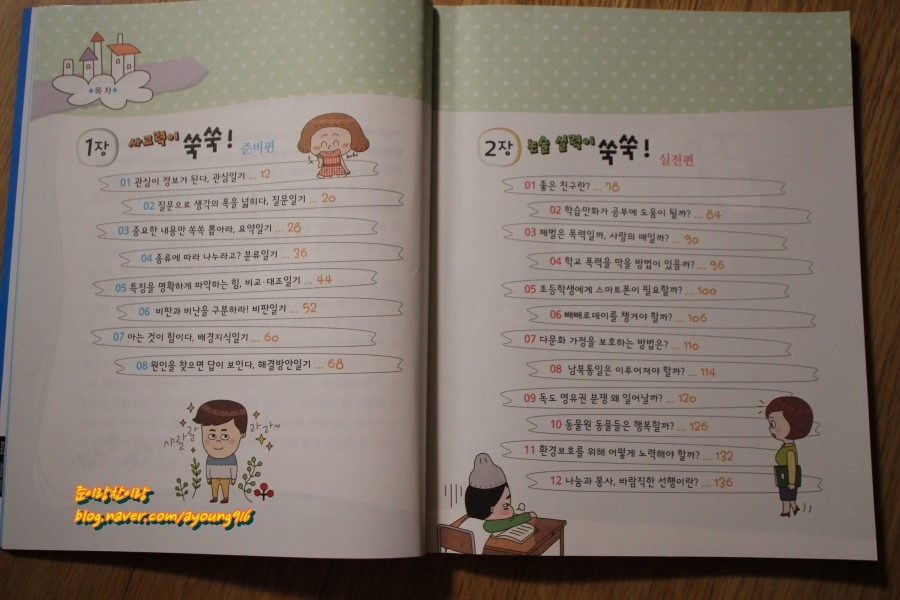 목차
1장 사고력이 쑥쑥! 준비편
01 관심이 정보가 된다, 관심일기 ... 12
02 질문으로 생각의 폭을 넓히다, 질문일기 ... 20
03 중요한 내용만 쏙쏙 뽑아라, 요약일기 ... 28
04 종류에 따라 나누라고? 분류일기 ... 36
05 특징을 명확하게 파악하는 힘, 비교·대조일기 ... 44
06 비판과 비난을 구분하라! 비판일기 ... 52
07 아는 것이 힘이다, 배경지식일기 ... 60
08 원인을 찾으면 답이 보인다, 해결방안일기 ... 68
샤랄랄 라라~
준이랑찬이랑
blog.naver.com/ayoung916
2장 논술 실력이 쑥쑥! 실전편
01 좋은 친구란? ... 78
02 학습만화가 공부에 도움이 될까? ... 84
03 체벌은 폭력일까, 사랑의 매일까? ... 90
04 학교 폭력을 막을 방법이 있을까? ... 96
05 초등학생에게 스마트폰이 필요할까? ... 100
06 빼빼로데이를 챙겨야 할까? ... 106
07 다문화 가정을 보호하는 방법은? ... 110
08 남북통일은 이루어져야 할까? ... 114
09 독도 영유권 분쟁 왜 일어날까? ... 120
10 동물원 동물들은 행복할까? ... 126
11 환경보호를 위해 어떻게 노력해야 할까? ... 132
12 나눔과 봉사, 바람직한 선행이란? ... 136